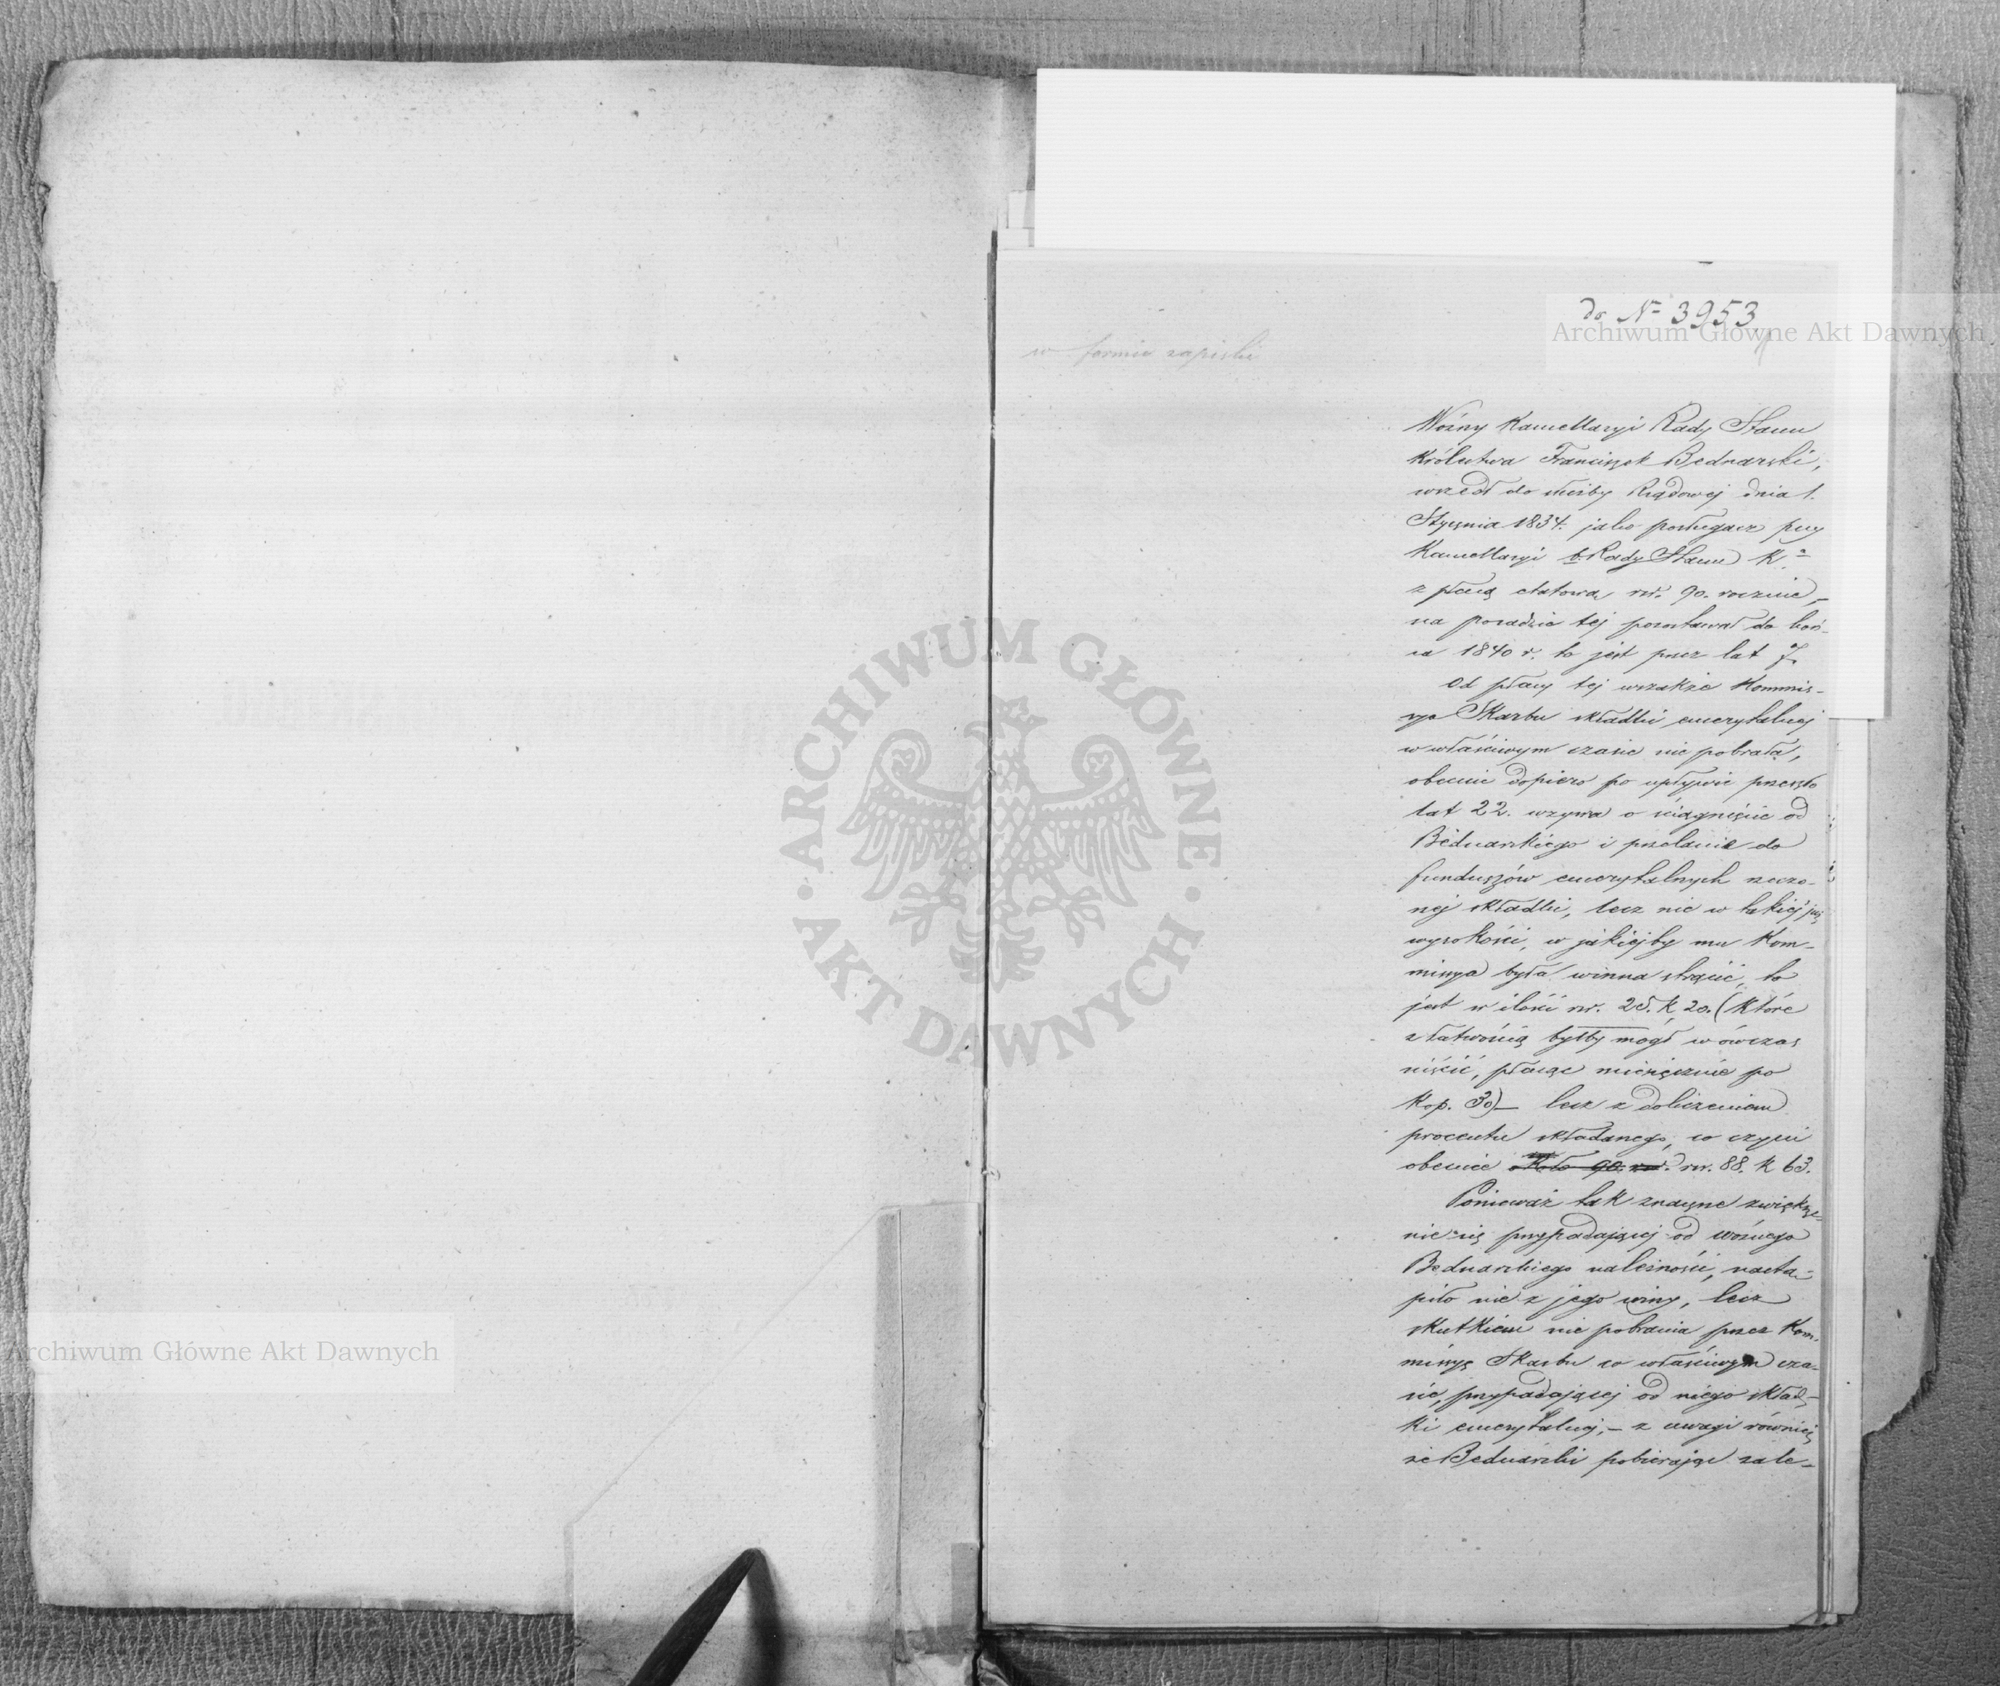 do № 3953
w formie zapiski
Woźny Kancellaryi Rady Stanu
Królestwa Franciszek Bednarski,
wszedł do służby Rządowej dnia 1.
Stycznia 1834. jako posługacz przy
Kancellaryi b. Rady Stanu K.a
z płacą etatową rsr. 90. rocznie,–
na posadzie tej pozostawał do koń-
ca 1840 r. to jest przez lat 7.
Od płacy tej wszakże Kommis-
sya Skarbu składki emerytalnej
w właściwym czasie nie pobrała,
obecnie dopiero po upływie przeszło
lat 22. wzywa o ściągnięcie od
Bednarskiego i przelanie do
funduszów emerytalnych rzeczo-
nej składki, lecz nie w takiej już
wysokości, w jakiejby mu Kom-
missya była winna strącić, to
jest w ilości rsr. 25. k 20. (które
z łatwością byłby mógł wówczas
uiścić, płacąc miesięcznie po
kop. 30) – lecz z doliczeniem
procentu składanego, co czyni
obecnie około 90. rsr. rsr. 88. k 63.
Ponieważ tak znaczne zwiększe-
nie się przypadającej od woźnego
Bednarskiego należności, nastą-
piło nie z jego winy, lecz
skutkiem nie pobrania przez Kom-
missyę Skarbu w właściwym cza-
sie, przypadającej od niego skład-
ki emerytalnej,– z uwagi również
że Bednarski pobierając zale-
Archiwum Główne Akt Dawnych
Archiwum Główne Akt Dawnych
ARCHIWUM GŁÓWNE · AKT DAWNYCH ·